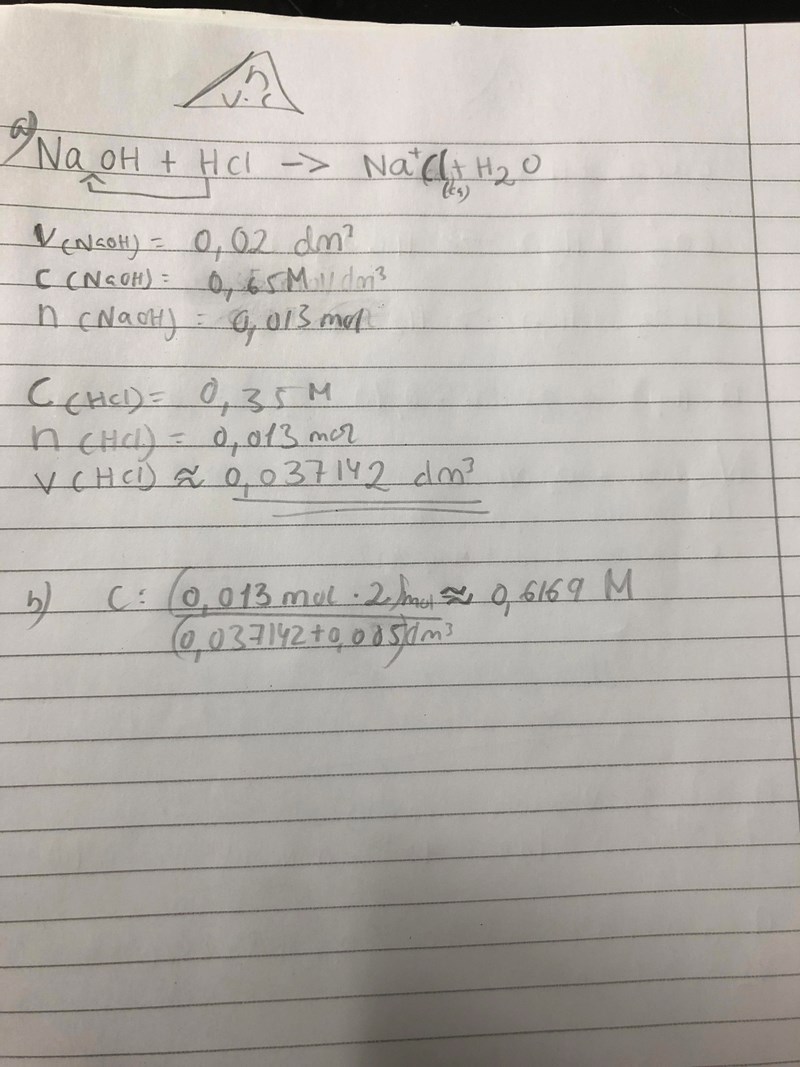 n
V · c
a)
NaOH + HCl -> Na⁺Cl + H₂O
(aq)
V(NaOH) = 0,02 dm³
C(NaOH) = 0,65M /dm³
n(NaOH) = 0,013 mol
C(HCl) = 0,35 M
n(HCl) = 0,013 mol
V(HCl) ≈ 0,037142 dm³
b) C: (0,013 mol · 2)mol ≈ 0,6169 M
(0,037142+0,005)dm³